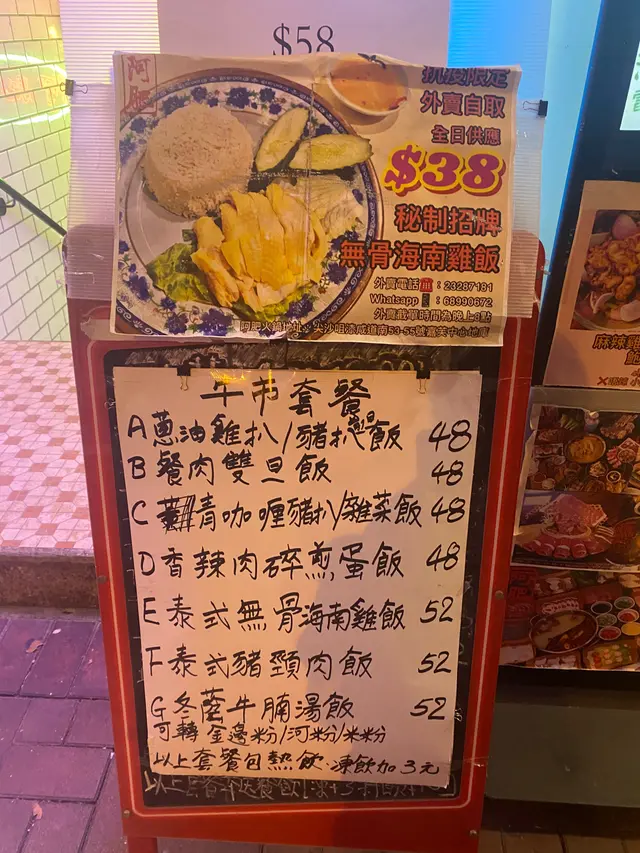 $58
阿肥
抗疫限定
外賣自取
全日供應
$38
秘制招牌
無骨海南雞飯
外賣電話 : 29287181
Whatsapp : 68990672
外賣截單時間為晚上8點
午市套餐
A蔥油雞扒/豬扒飯 48
B餐肉雙旦飯 48
C青咖喱豬扒/雜菜飯 48
D香辣肉碎煎蛋飯 48
E泰式無骨海南雞飯 52
F泰式豬頸肉飯 52
G冬蔭牛腩湯飯 52
可轉金邊粉/河粉/米粉
以上套餐包熱飲.凍飲加3元
麻辣雞